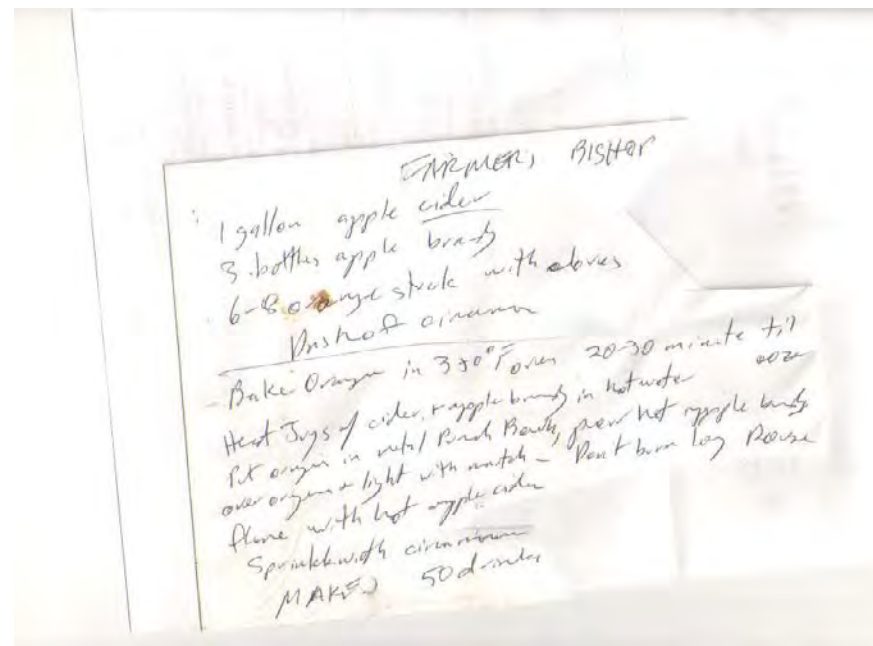 FARMERS BISHOP
1 gallon apple cider
3 bottles apple brandy
6-8 orange stuck with cloves
Dash of cinamon
- Bake Oranges in 350°F oven 20-30 minute til ooze
Heat Jugs of cider, + apple brandy in hot water
Put oranges in metal Punch Bowl, pour hot apple brandy
over oranges + light with match - Don't burn long Douse
flame with hot apple cider
Sprinkle with cinammon
MAKES 50 drinks